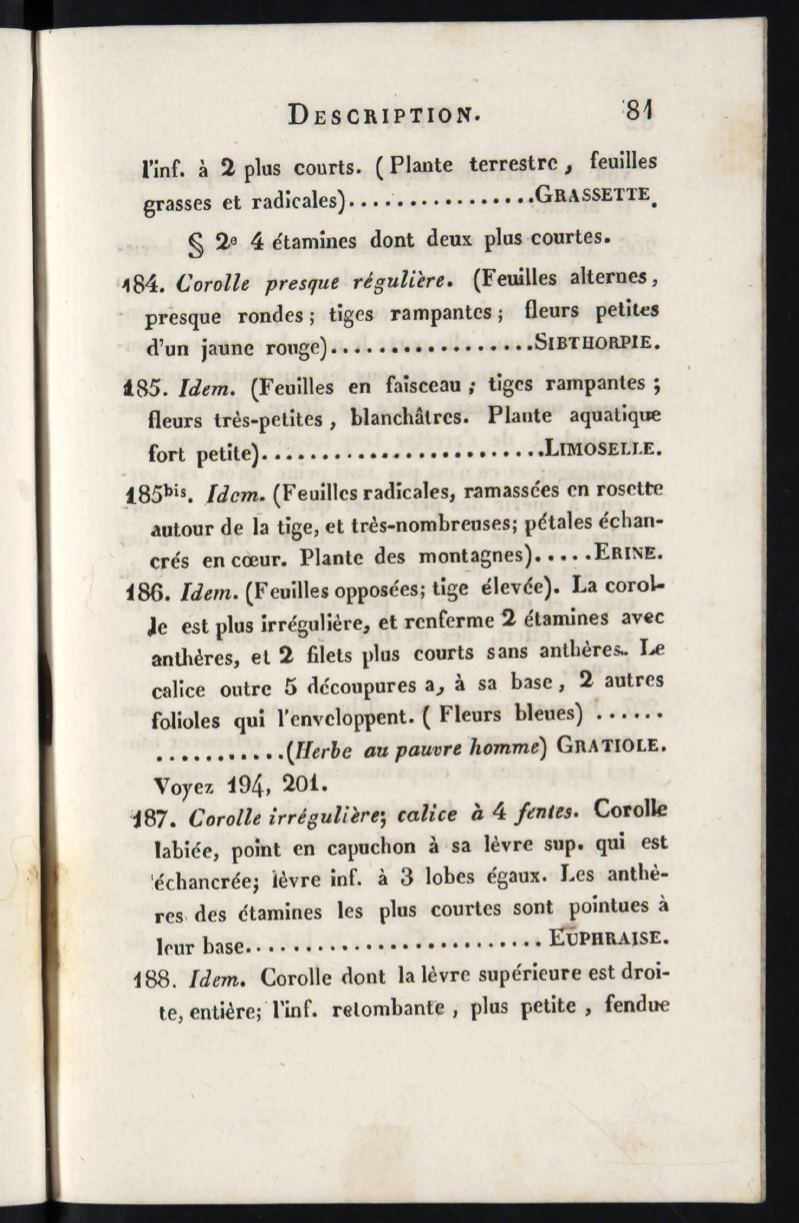 DESCRIPTION. 81
l'inf. à 2 plus courts. ( Plante terrestre , feuilles
grasses et radicales)................GRASSETTE.
§ 2e 4 étamines dont deux plus courtes.
184. Corolle presque régulière. (Feuilles alternes,
presque rondes ; tiges rampantes ; fleurs petites
d'un jaune rouge).................SIBTHORPIE.
185. Idem. (Feuilles en faisceau ; tiges rampantes ;
fleurs très-petites , blanchâtres. Plante aquatique
fort petite)........................LIMOSELLE.
185bis. Idem. (Feuilles radicales, ramassées en rosette
autour de la tige, et très-nombreuses; pétales échan-
crés en cœur. Plante des montagnes).....ERINE.
186. Idem. (Feuilles opposées; tige élevée). La corol-
le est plus irrégulière, et renferme 2 étamines avec
anthères, et 2 filets plus courts sans anthères.. Le
calice outre 5 découpures a, à sa base , 2 autres
folioles qui l'enveloppent. ( Fleurs bleues) ......
...........(Herbe au pauvre homme) GRATIOLE.
Voyez 194, 201.
187. Corolle irrégulière; calice à 4 fentes. Corolle
labiée, point en capuchon à sa lèvre sup. qui est
échancrée; lèvre inf. à 3 lobes égaux. Les anthè-
res des étamines les plus courtes sont pointues à
leur base......................... EUPHRAISE.
188. Idem. Corolle dont la lèvre supérieure est droi-
te, entière; l'inf. retombante , plus petite , fendue